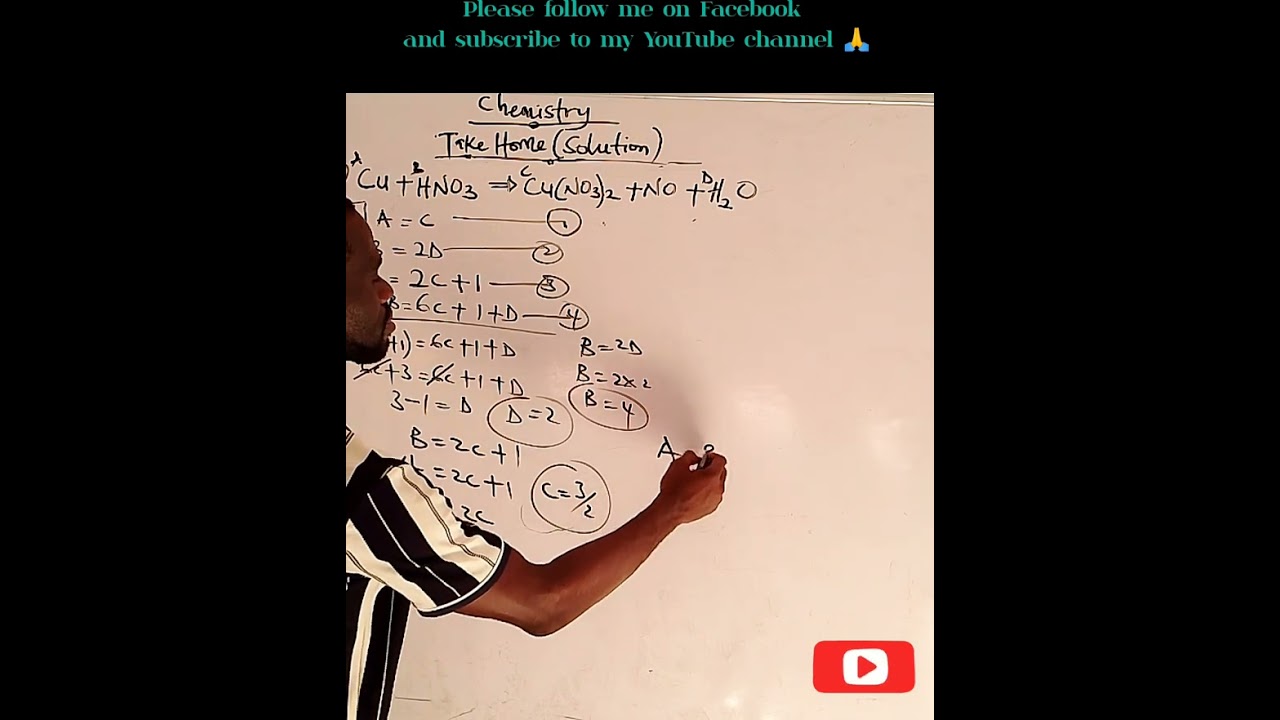 Please follow me on Facebook
and subscribe to my YouTube channel 🙏
Chemistry
Take Home (Solution)
A B C D
Cu + HNO3 ⇒ Cu(NO3)2 + NO + H2O
A = C 1
B = 2D 2
= 2C + 1 3
B = 6C + 1 + D 4
+1) = 6C + 1 + D
+ 3 = 6C + 1 + D
3 - 1 = D
D = 2
B = 2C + 1
= 2C + 1
2C
C = 3/2
B = 2D
B = 2 x 2
B = 4
A